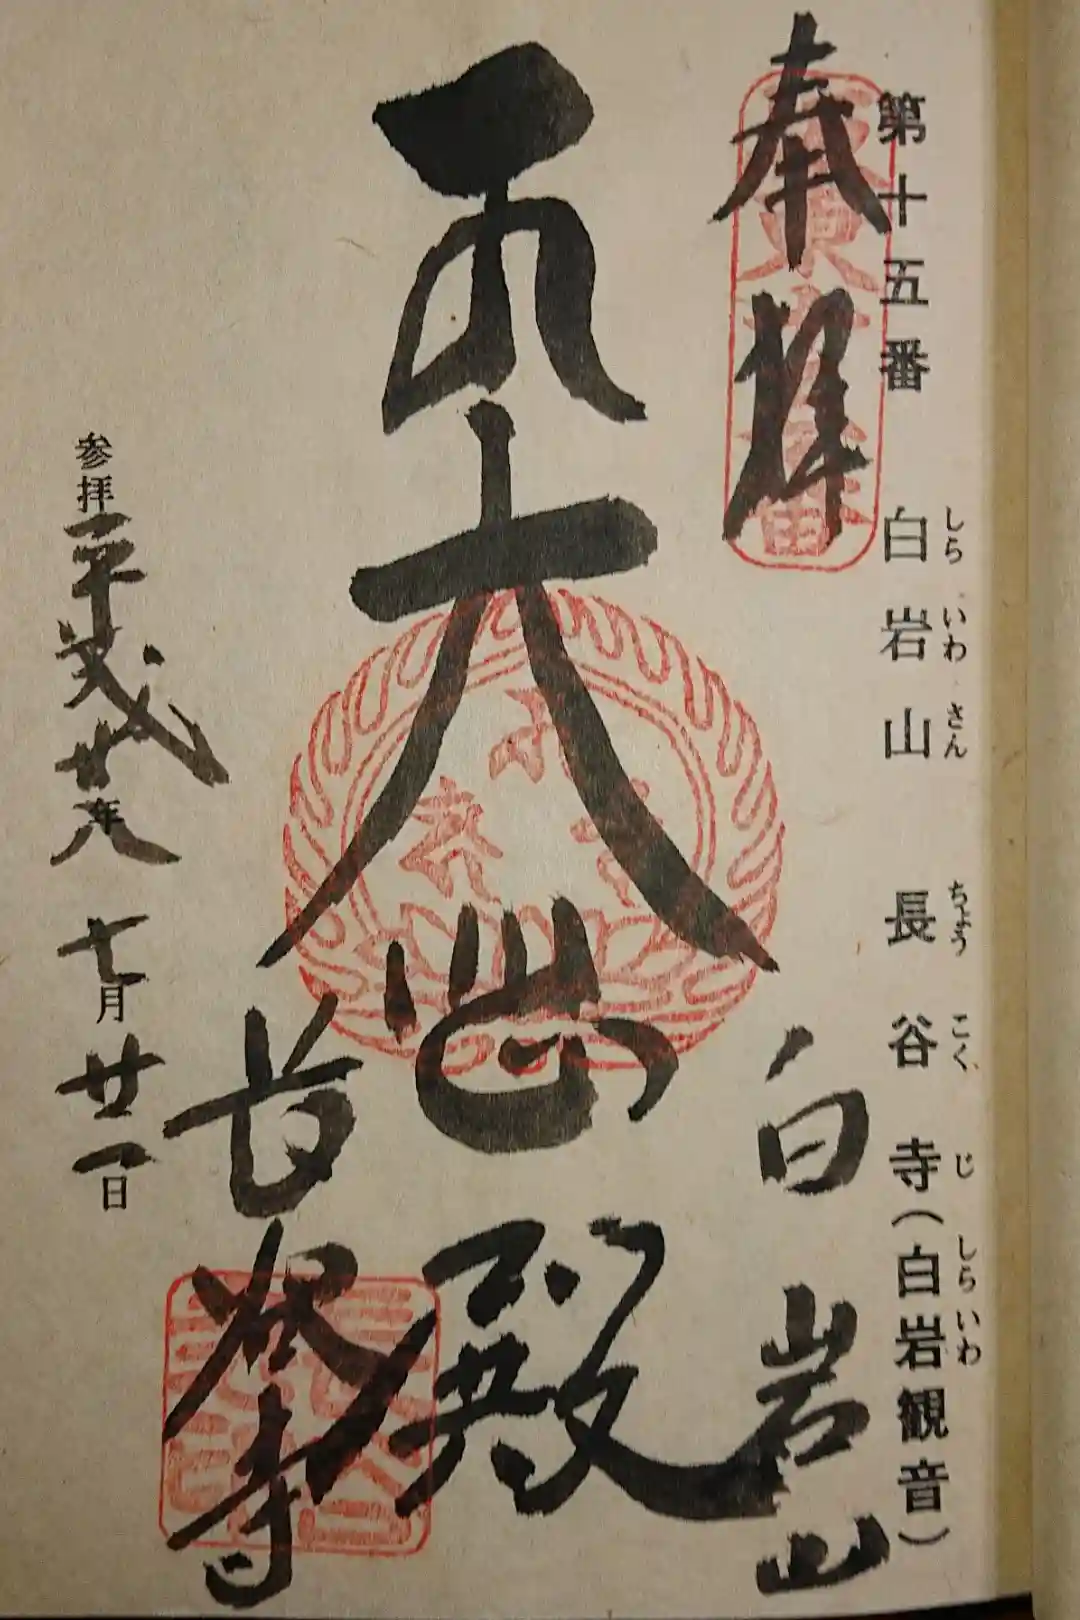 第十五番 白岩山 長谷寺(白岩観音)
しらいわさん ちょうこくじ しらいわ
奉拝
白岩山
大悲殿
長谷寺
参拝平成廿八年七月廿一日